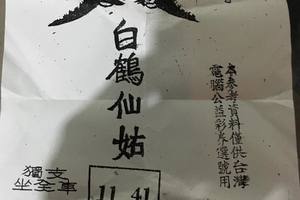 白鶴仙姑
本參考資料僅供台灣
電腦公益彩券選號用
獨支
坐全車
11 41